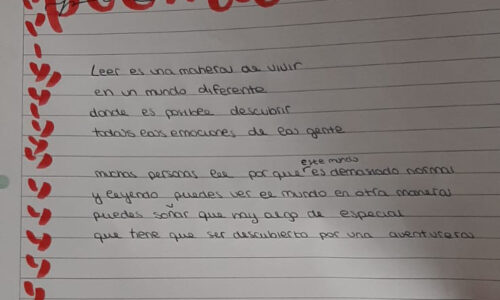 Leer es una manera de vivir
en un mundo diferente
donde es posible descubrir
todas las emociones de las gente
muchas personas lee por que este mundo es demasiado normal
y leyendo puedes ver el mundo en otra manera
puedes soñar que hay algo de especial
que tiene que ser descubierto por una aventurera